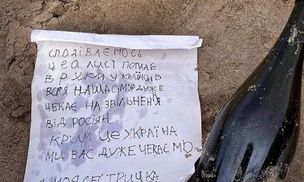 СПОДІВАЄМОСЬ
ЦЕЙ ЛИСТ ПОПАДЕ
В РУКИ УКРАЇНЦІВ
ВСЯ НАША СІМ'Я ДУЖЕ
ЧЕКАЄ НА ЗВІЛЬНЕННЯ
ВІД РОСІЯН
КРИМ ЦЕ УКРАЇНА
МИ ВАС ДУЖЕ ЧЕКАЄМО
МОЯ СЕСТРИЧКА